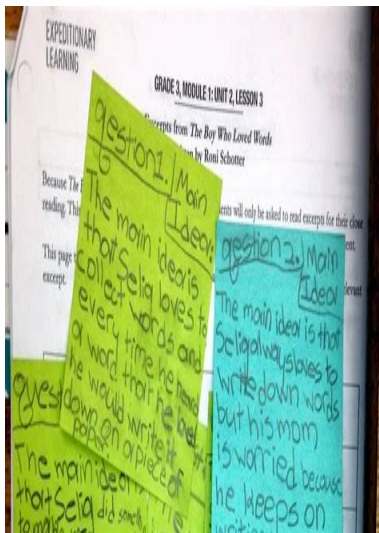 EXPEDITIONARY
LEARNING
GRADE 3, MODULE 1: UNIT 2, LESSON 3
Excerpts from The Boy Who Loved Words
by Roni Schotter
Because The
ents will only be asked to read excerpts for their close
reading. This
ent.
This page
levant
excerpt.
qestion1. Main
Idea
The main idea is
that Selig loves to
collect words and
every time he
a word that he
he would write it
down on a piece of
qestion 2. Main
Idea
The main idea is that
Selig always loves to
write down words
but his mom
is worried because
he keeps on
ques
The main idea
that Selig did